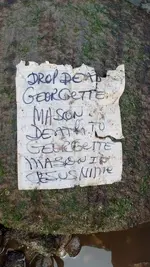 DROP DEAD
GEORGETTE
MASON
DEATH TO
GEORGETTE
MASON IN
JESUS NAME